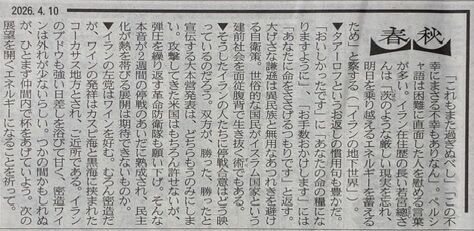 2026.4.10
春秋
「これもまた過ぎぬべし」「この不
幸にまさる不幸もありなん」。ペルシ
ャ語は困難に直面した人を慰める言葉
が多い。イラン在住歴の長い若宮總さ
んは「茨のような厳しい現実を忘れ、
明日を乗り越えるエネルギーを蓄える
ため」と察する（「イランの地下世界」）。
▼タアーロフというお返しの慣用句も豊かだ。
「おいしかったです」に「あなたの命の糧にな
りますように」、「お手数おかけします」には
「あなたに命をささげるつもりです」と返す。
大げさな謙遜は異民族と無用なあつれきを避け
る自衛策。世俗的な国民がイスラム国家という
建前社会を面従腹背で生き抜く術でもある。
▼そうしたイランの人たちに停戦合意はどう映
っているのだろう。双方が、勝った、勝ったと
宣伝する大本営発表は、どちらもうのみにしな
い。攻撃してきた米国はもちろん許せないが、
弾圧を繰り返す革命防衛隊も願い下げ。そんな
本音が2週間の停戦のあいだに熟成され、民主
化が熱を帯びる展開は期待できないものか。
▼イランの左党はワインを好む。むろん密造だ
が、ワインの発祥はカスピ海と黒海に挟まれた
コーカサス地方とされ、ご近所である。イラン
のブドウも強い日差しを浴びて甘く、密造ワイ
ンは外れが少ないらしい。つかの間かもしれぬ
が、ひとまず仲間内で杯をあげていよう。次の
展望を開くエネルギーになることを祈って。